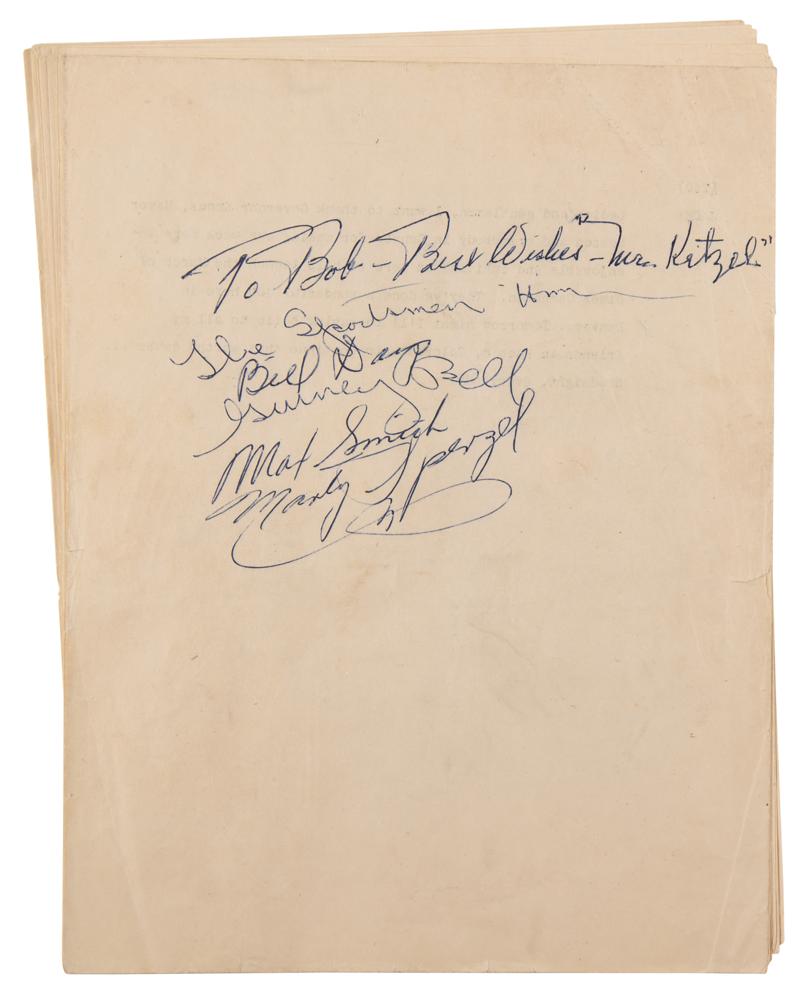 To Bob – Best Wishes – "Mr. Kitzel"
The Sportsmen "Hmm
Bill Days
Gurney Bell
Max Smith
Marty Sperzel